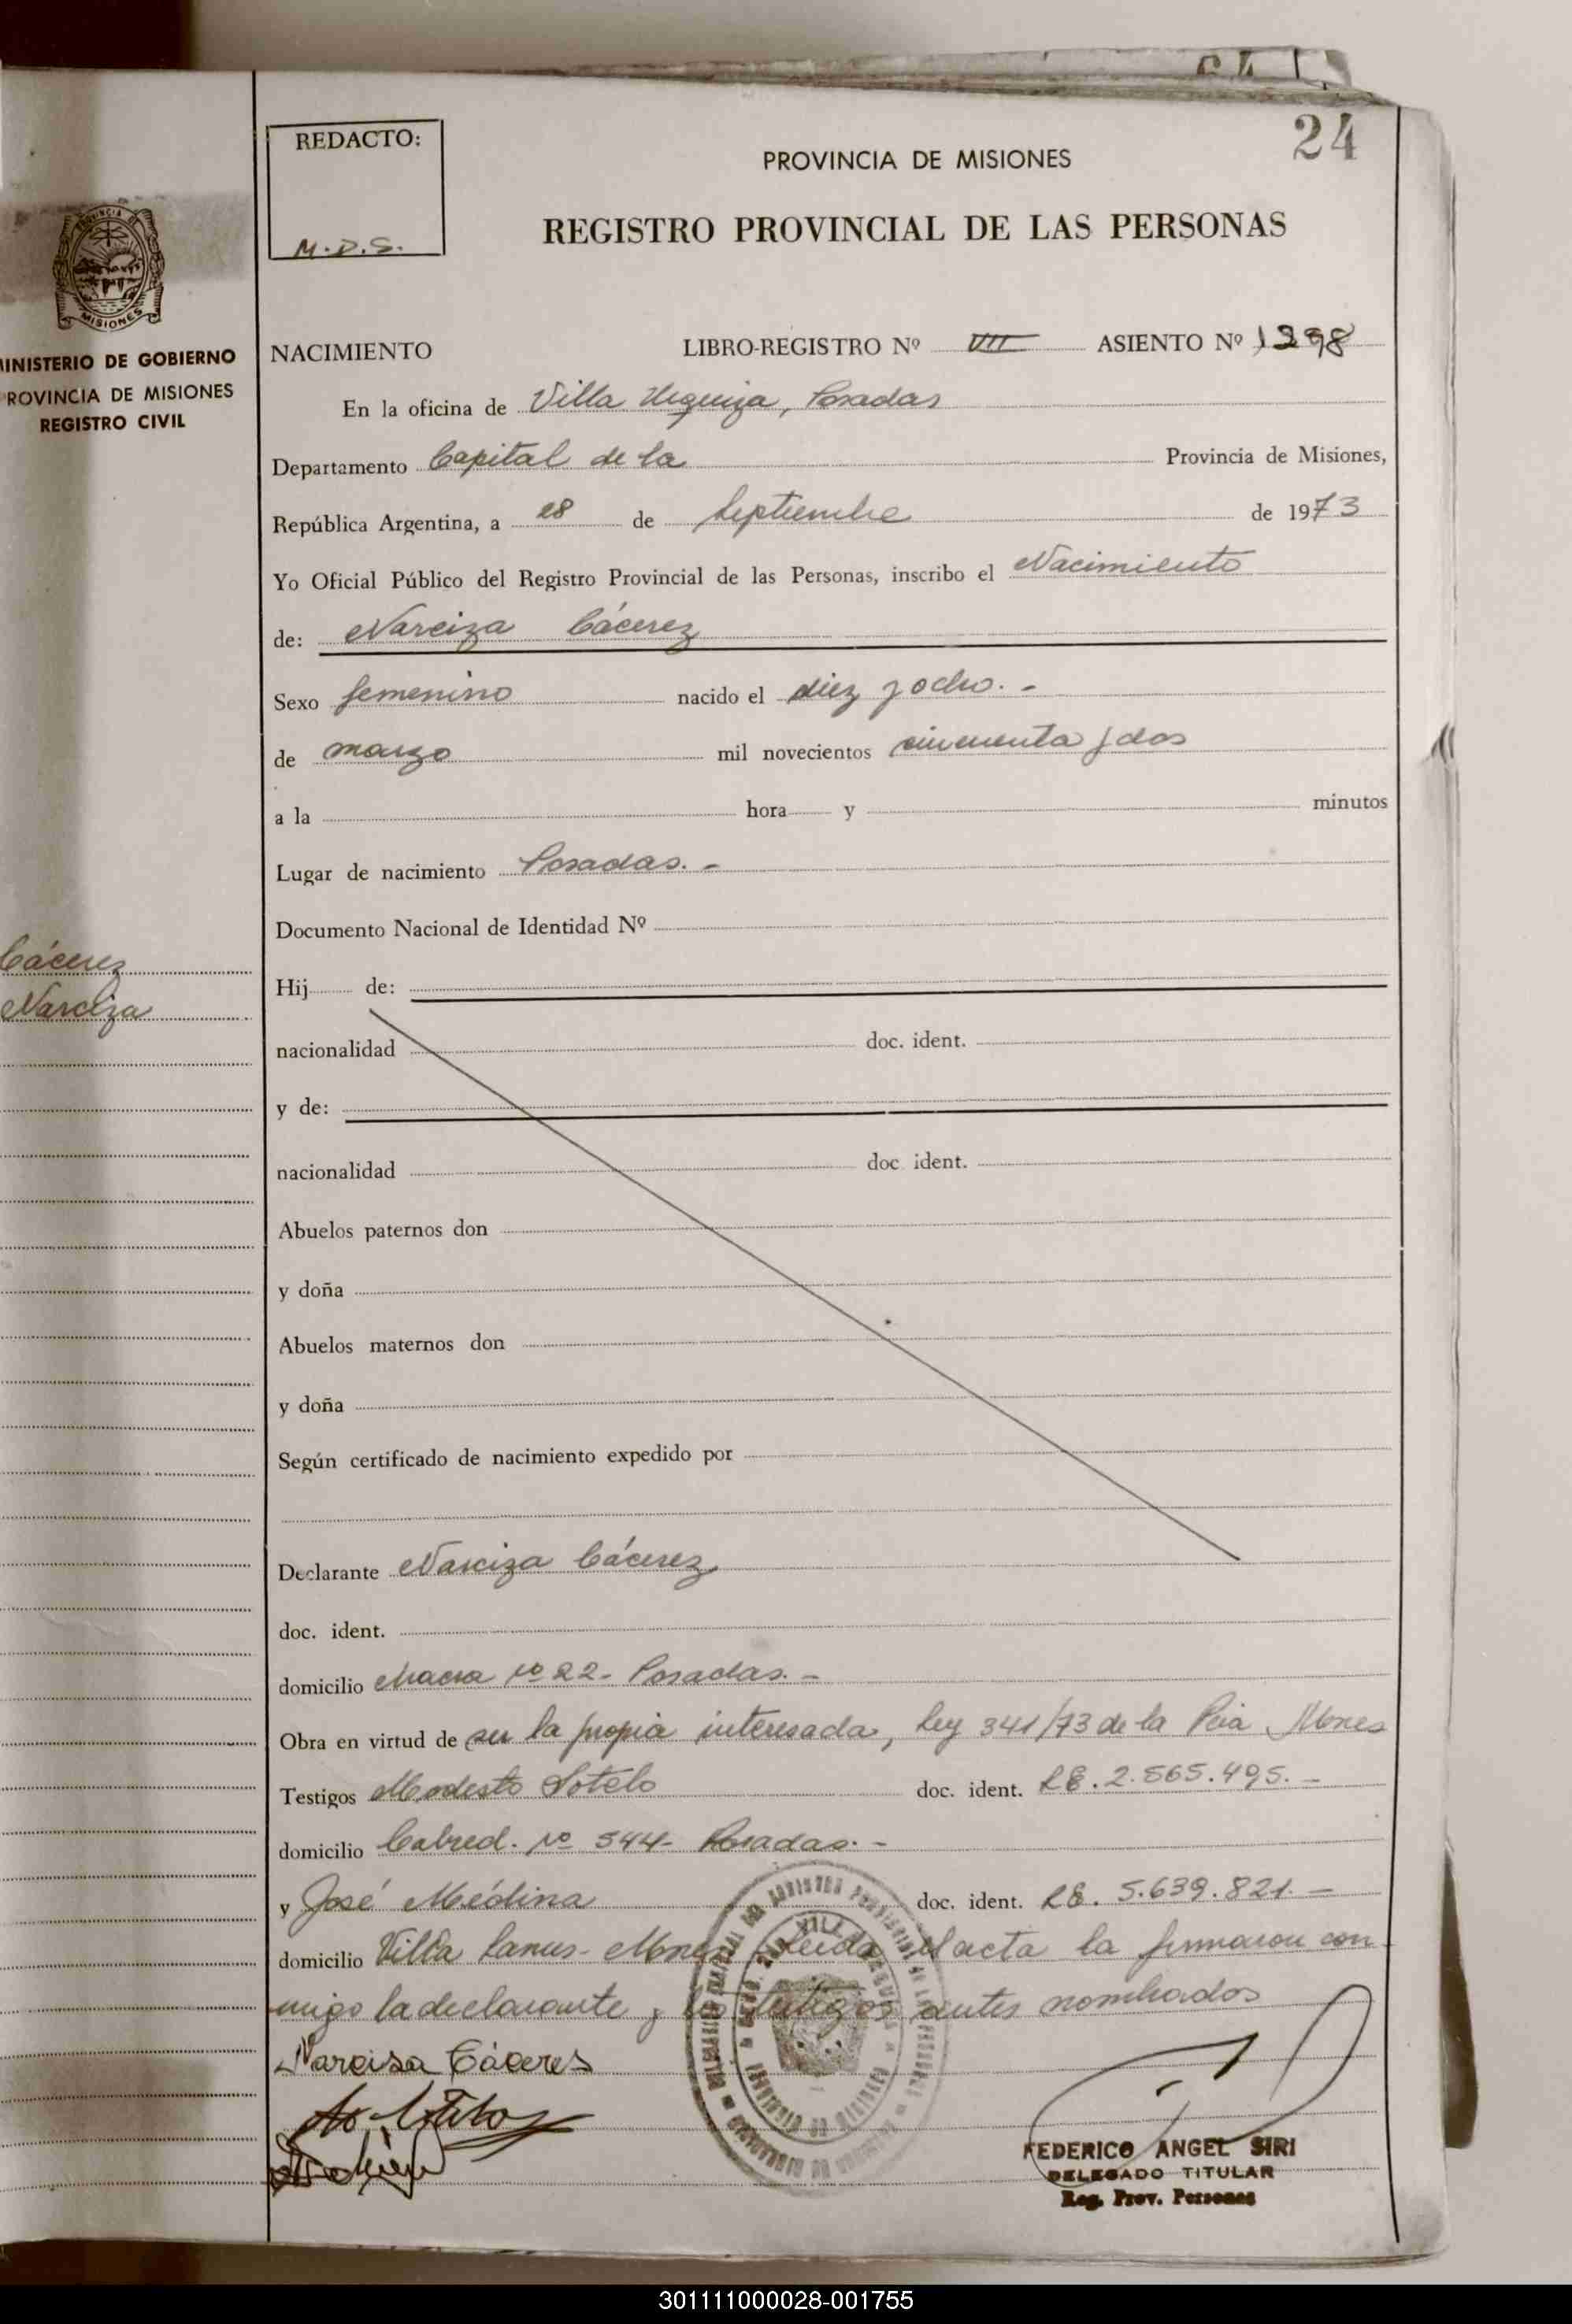 64
24
REDACTO:
M.D.S.
PROVINCIA DE MISIONES
REGISTRO PROVINCIAL DE LAS PERSONAS
PROVINCIA DE
MISIONES
MINISTERIO DE GOBIERNO
PROVINCIA DE MISIONES
REGISTRO CIVIL
Cácerez
Narciza
NACIMIENTO LIBRO-REGISTRO Nº VII ASIENTO Nº 1298
En la oficina de Villa Urquiza, Posadas
Departamento Capital de la Provincia de Misiones,
República Argentina, a 28 de Septiembre de 1973
Yo Oficial Público del Registro Provincial de las Personas, inscribo el Nacimiento
de: Narciza Cácerez
Sexo femenino nacido el diez y ocho. -
de marzo mil novecientos cincuenta y dos
a la hora y minutos
Lugar de nacimiento Posadas. -
Documento Nacional de Identidad Nº
Hij de:
nacionalidad doc. ident.
y de:
nacionalidad doc. ident.
Abuelos paternos don
y doña
Abuelos maternos don
y doña
Según certificado de nacimiento expedido por
Declarante Narciza Cácerez
doc. ident.
domicilio Chacra Nº 22- Posadas. -
Obra en virtud de ser la propia interesada, Ley 341/73 de la Pcia Mnes
Testigos Modesto Sotelo doc. ident. LE. 2.565.495. -
domicilio Cabred. Nº 544- Posadas. -
y José Médina doc. ident. LE. 5.639.821. -
domicilio Villa Lanus- Mnes. Leida el acta la firmaron con-
migo la declarante y los testigos antes nombrados
Narcisa Cáceres
FEDERICO ANGEL SIRI
DELEGADO TITULAR
Reg. Prov. Personas
301111000028-001755